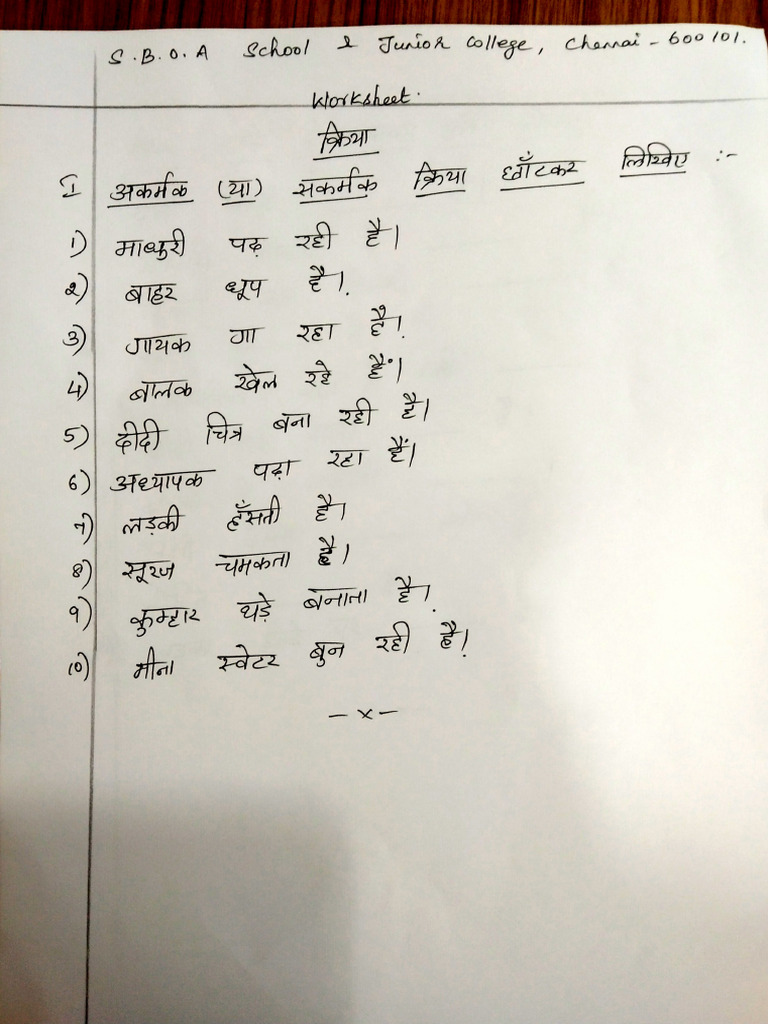 S.B.O.A School & Junior College, Chennai - 600101.
Worksheet.
क्रिया
I अकर्मक (या) सकर्मक क्रिया छाँटकर लिखिए :-
1) माधुरी पढ़ रही है।
2) बाहर धूप है।
3) गायक गा रहा है।
4) बालक खेल रहे हैं।
5) दीदी चित्र बना रही है।
6) अध्यापक पढ़ा रहा हैं।
7) लड़की हँसती है।
8) सूरज चमकता है।
9) कुम्हार घड़े बनाता है।
10) मीना स्वेटर बुन रही है।
- x -